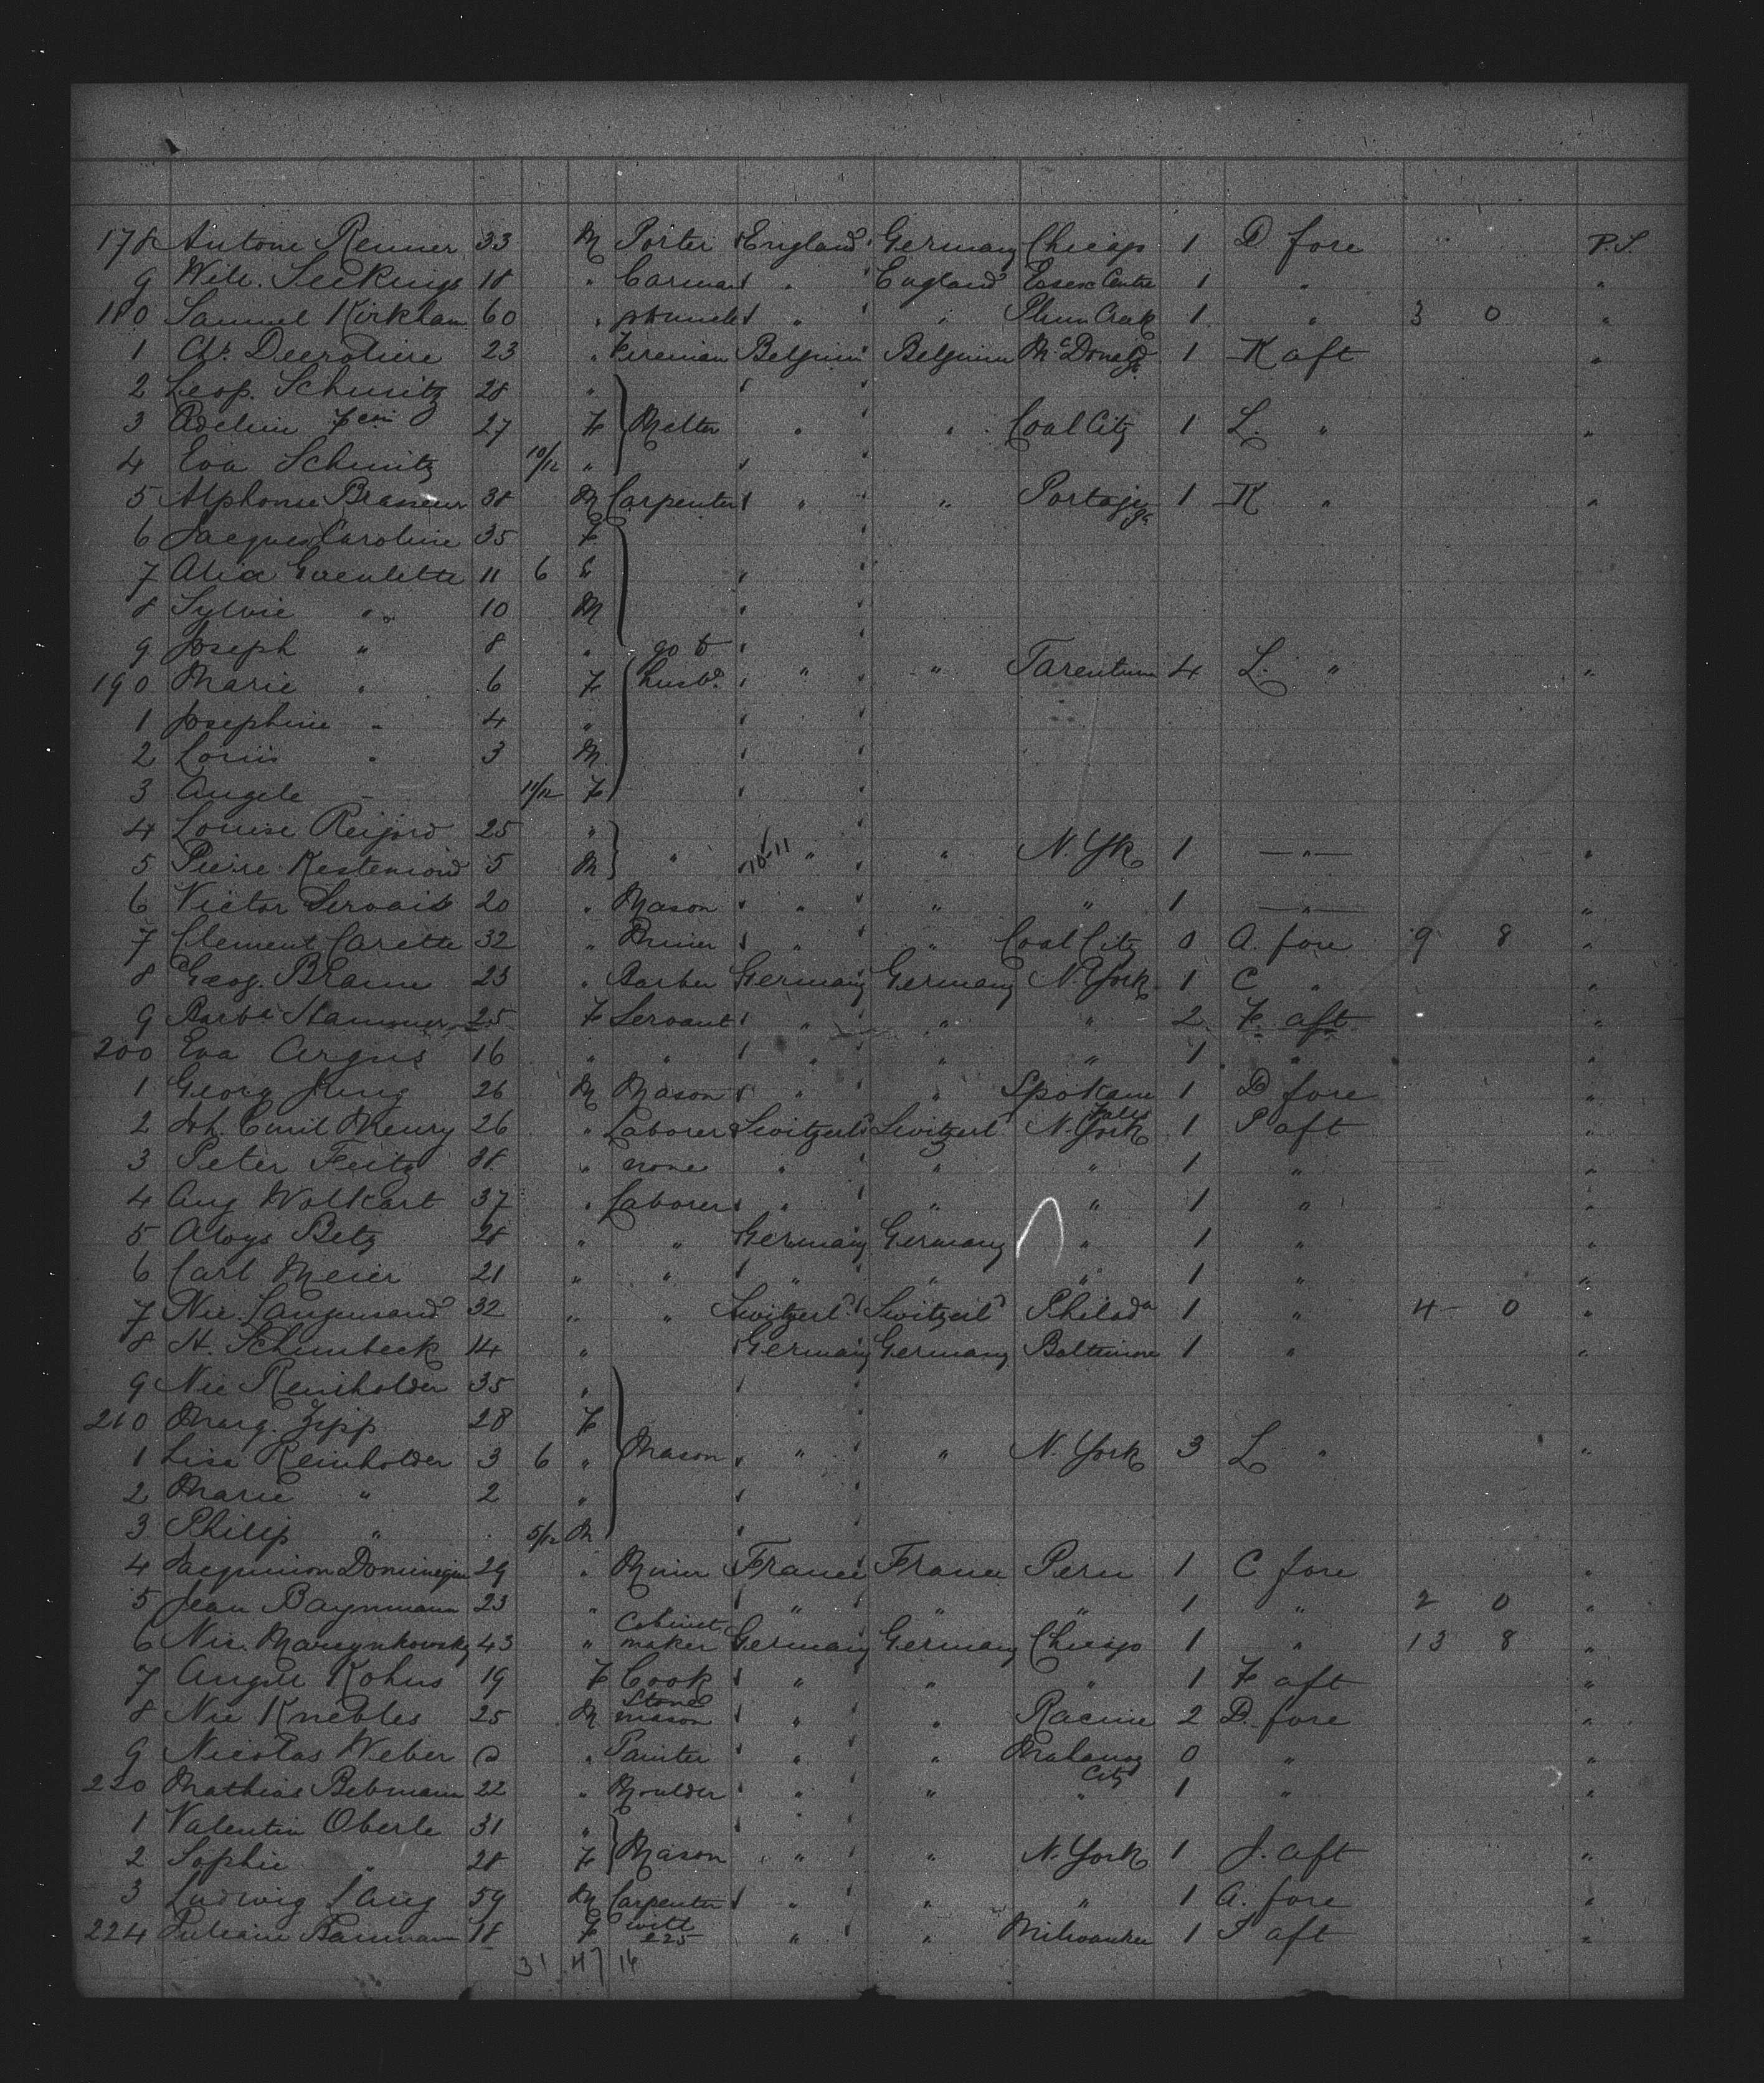 178 Antone Renner 33 M Porter England Germany Chicago 1 D fore P.S.
9 Will. Seekings 18 " Carman " England Essex Centre 1 " "
180 Samuel Kirkham 60 " " " Plum Creek 1 " 3 0 "
1 Chs. 23 " Belgium Belgium McDonald 1 K aft "
2 Leop. Schmitz 28 "
3 Adelin 27 F Melter " " Coal City 1 L. " "
4 Eva Schmitz 10/12 "
5 Alphonse Brasseur 38 M Carpenter " " Portage 1 K " "
6 Jacques Caroline 35 F
7 Alix 11 6 "
8 Sylvie " 10 M
9 Joseph " 8 " go to
190 Marie " 6 F husbd. " " Tarentum 4 L. " "
1 Josephine " 4 "
2 Louis " 3 M
3 Angele - 11/12 F
4 Louise 25 "
5 Pierre 5 M " 10-11 " " N. Yk 1 — " — "
6 Victor Servais 20 " Mason " " " 1 — " — "
7 Clement Carette 32 " Miner " " Coal City 0 A. fore 9 8 "
8 Georg. Braun 23 " Barber Germany Germany N. York 1 C " "
9 Barba Hammer 25 F Servant " " " 2 F. aft "
200 Eva Argus 16 " " " " 1 " "
1 Georg Jung 26 M Mason " " Spokane Falls 1 D fore "
2 Joh. Emil Meury 26 " Laborer Switzerld Switzerl N. York 1 P aft "
3 Peter Feitz 38 " none " " " 1 " "
4 Aug Wolkart 37 " Laborer " " " 1 " "
5 Aloys Betz 28 " " Germany Germany " 1 " "
6 Carl Meier 21 " " " " " 1 " "
7 Nic. Langensand 32 " " Switzerld Switzerld Philada 1 " 4 0 "
8 H. Schunbeck 14 " Germany Germany Baltimore 1 " "
9 Nic Reinholder 35 "
210 Marg. Zipp 28 F
1 Lisa Reinholder 3 6 " Mason " " N. York 3 L " "
2 Marie " 2 "
3 Philip " 5/12 M
4 Jacquinon 29 " Miner France France Peru 1 C fore "
5 Jean Baynmann 23 " " " " 1 " 2 0 "
6 Nic. Marcynkowsky 43 " Cabinet maker Germany Germany Chicago 1 " 13 8 "
7 Angel Kohns 19 F Cook " " " 1 F aft "
8 Nic Knebles 25 M Stone mason " " Racine 2 D. fore "
9 Nicolas Weber " Painter " " Mahanoy City 0 " "
220 Mathias Bebmann 22 " Moulder " " " 1 " "
1 Valentin Oberle 31 "
2 Sophie " 28 F Mason " " N. York 1 J. aft "
3 Ludwig Lang 59 M Carpenter " " " 1 A. fore "
224 18 F with 225 " " Milwaukee 1 S aft "
31 47 16